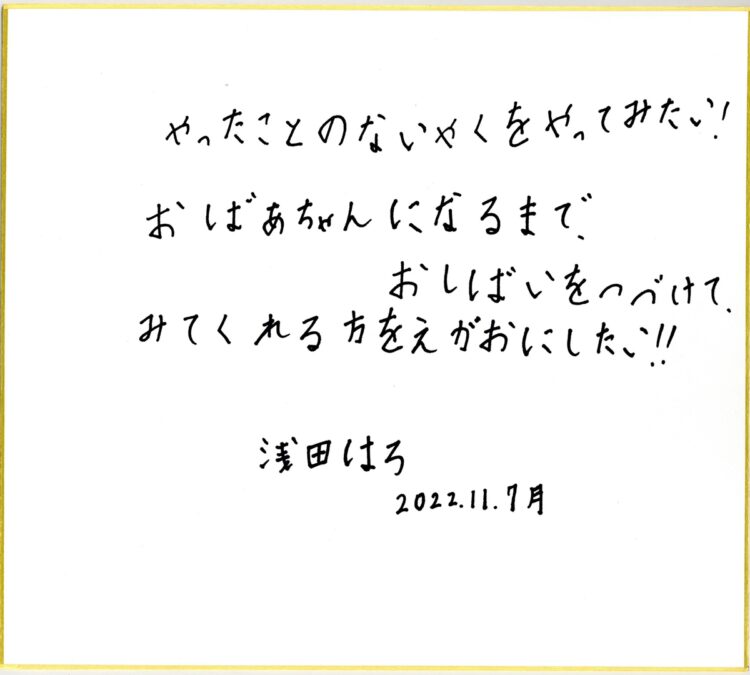 やったことのないやくをやってみたい!
おばあちゃんになるまで、
おしばいをつづけて、
みてくれる方をえがおにしたい!!
浅田はろ
2022.11.7月